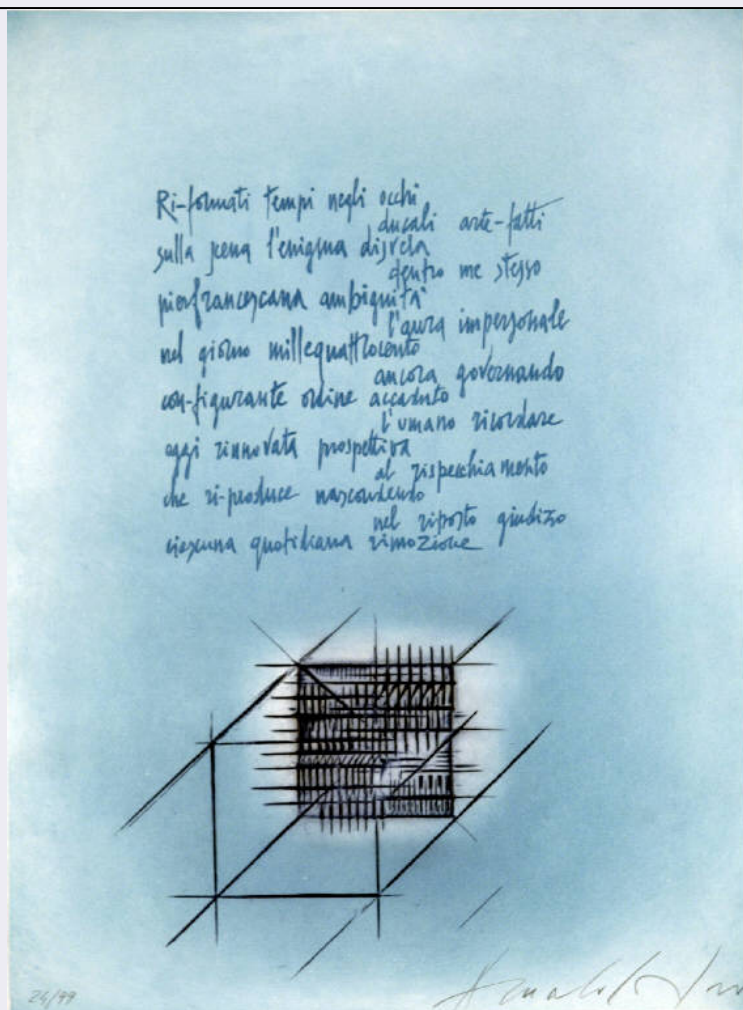 Ri-formati tempi negli occhi
ducali arte-fatti
sulla scena l'enigma disvela
dentro me stesso
pierfrancescana ambiguità
l'aura impersonale
nel giorno millequattrocento
ancora governando
con-figurante ordine accaduto
l'umano ricordare
oggi rinnovata prospettiva
al rispecchiamento
che ri-produce nascondendo
nel riposto giudizio
ciascuna quotidiana rimozione
24/99